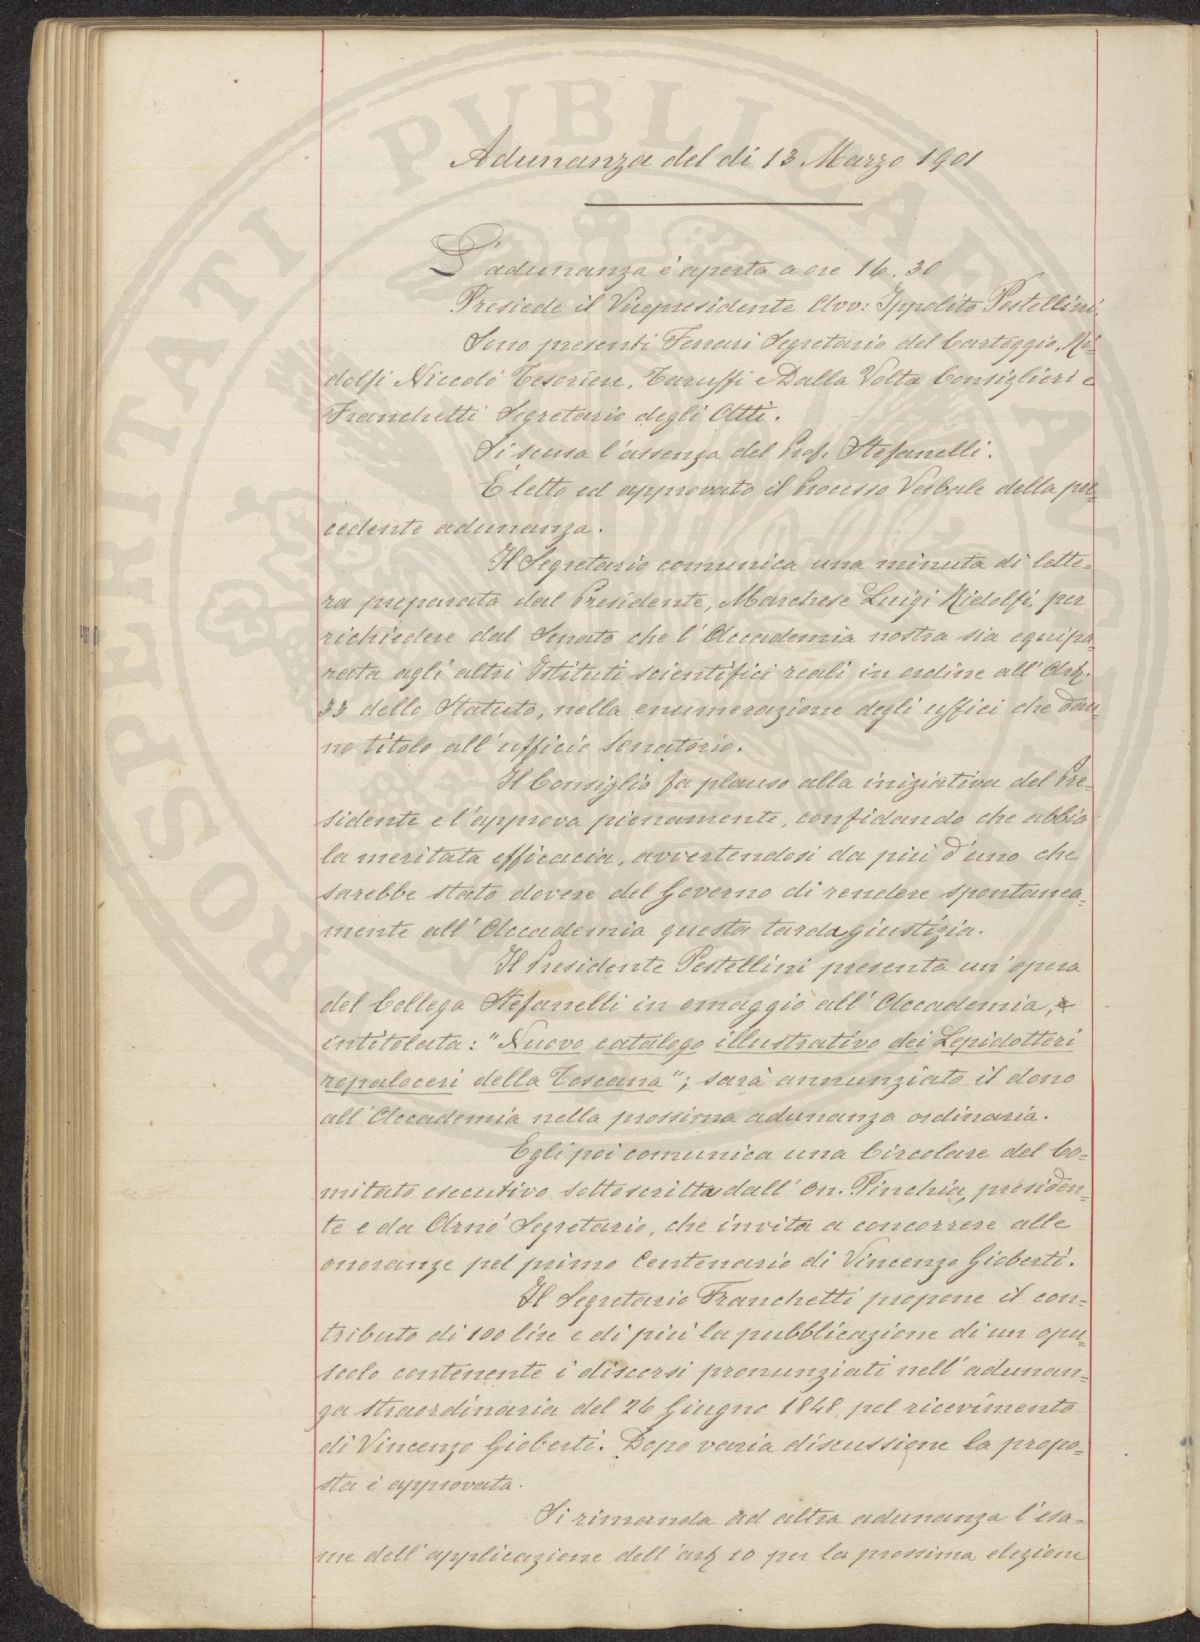 Adunanza del di 13 Marzo 1901
L'adunanza è aperta a ore 16.30
Presiede il Vicepresidente Avv: Ippolito Pestellini.
Sono presenti Ferrari Segretario del Carteggio, Ri-
dolfi Niccolò Tesoriere, Taruffi e Dalla Volta Consiglieri e
Franchetti Segretario degli Atti.
Si scusa l'assenza del Prof. Stefanelli.
È letto ed approvato il Processo Verbale della pre-
cedente adunanza.
Il Segretario comunica una minuta di lette-
ra preparata dal Presidente, Marchese Luigi Ridolfi, per
richiedere dal Senato che l'Accademia nostra sia equipa-
rata agli altri Istituti scientifici reali in ordine all'Art.
33 dello Statuto, nella enumerazione degli uffici che dan-
no titolo all'ufficio Senatorio.
Il Consiglio fa plauso alla iniziativa del Pre-
sidente e l'approva pienamente, confidando che abbia
la meritata efficacia, avvertendosi da più d'uno che
sarebbe stato dovere del Governo di rendere spontanea-
mente all'Accademia questa tarda giustizia.
Il Presidente Pestellini presenta un'opera
del Collega Stefanelli in omaggio all'Accademia,
intitolata: "Nuovo catalogo illustrativo dei Lepidotteri
ropaloceri della Toscana"; sarà annunziato il dono
all'Accademia nella prossima adunanza ordinaria.
Egli poi comunica una Circolare del Co-
mitato esecutivo sottoscritta dall'On. Pinchia, presiden-
te e da Arnò Segretario, che invita a concorrere alle
onoranze pel primo Centenario di Vincenzo Gioberti.
Il Segretario Franchetti propone il con-
tributo di 100 lire e di più la pubblicazione di un opu-
scolo contenente i discorsi pronunziati nell'adunan-
za straordinaria del 26 Giugno 1848 pel ricevimento
di Vincenzo Gioberti. Dopo varia discussione la propo-
sta è approvata.
Si rimanda ad altra adunanza l'esa-
me dell'applicazione dell'art 10 per la prossima elezione
PROSPERITATI PUBLICAE AUGENDAE